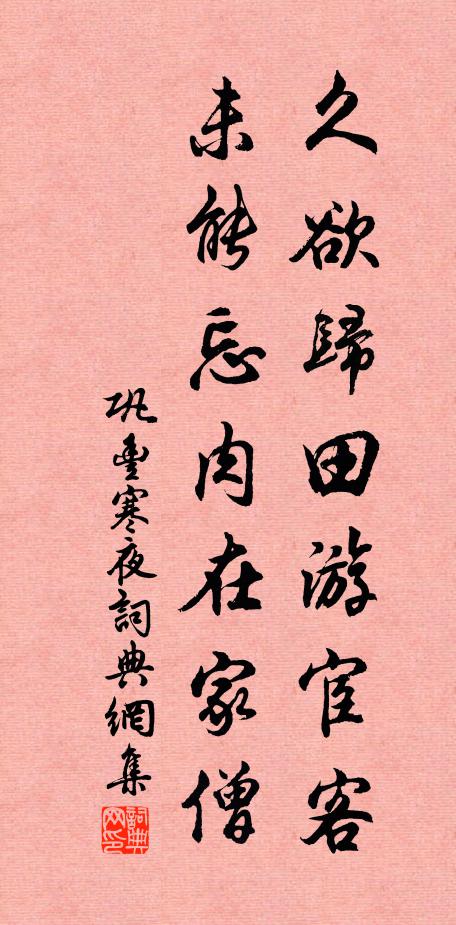 久欲歸田游宦客
未能忘肉在家僧
巩豊寒夜詞典網集
詞典网印